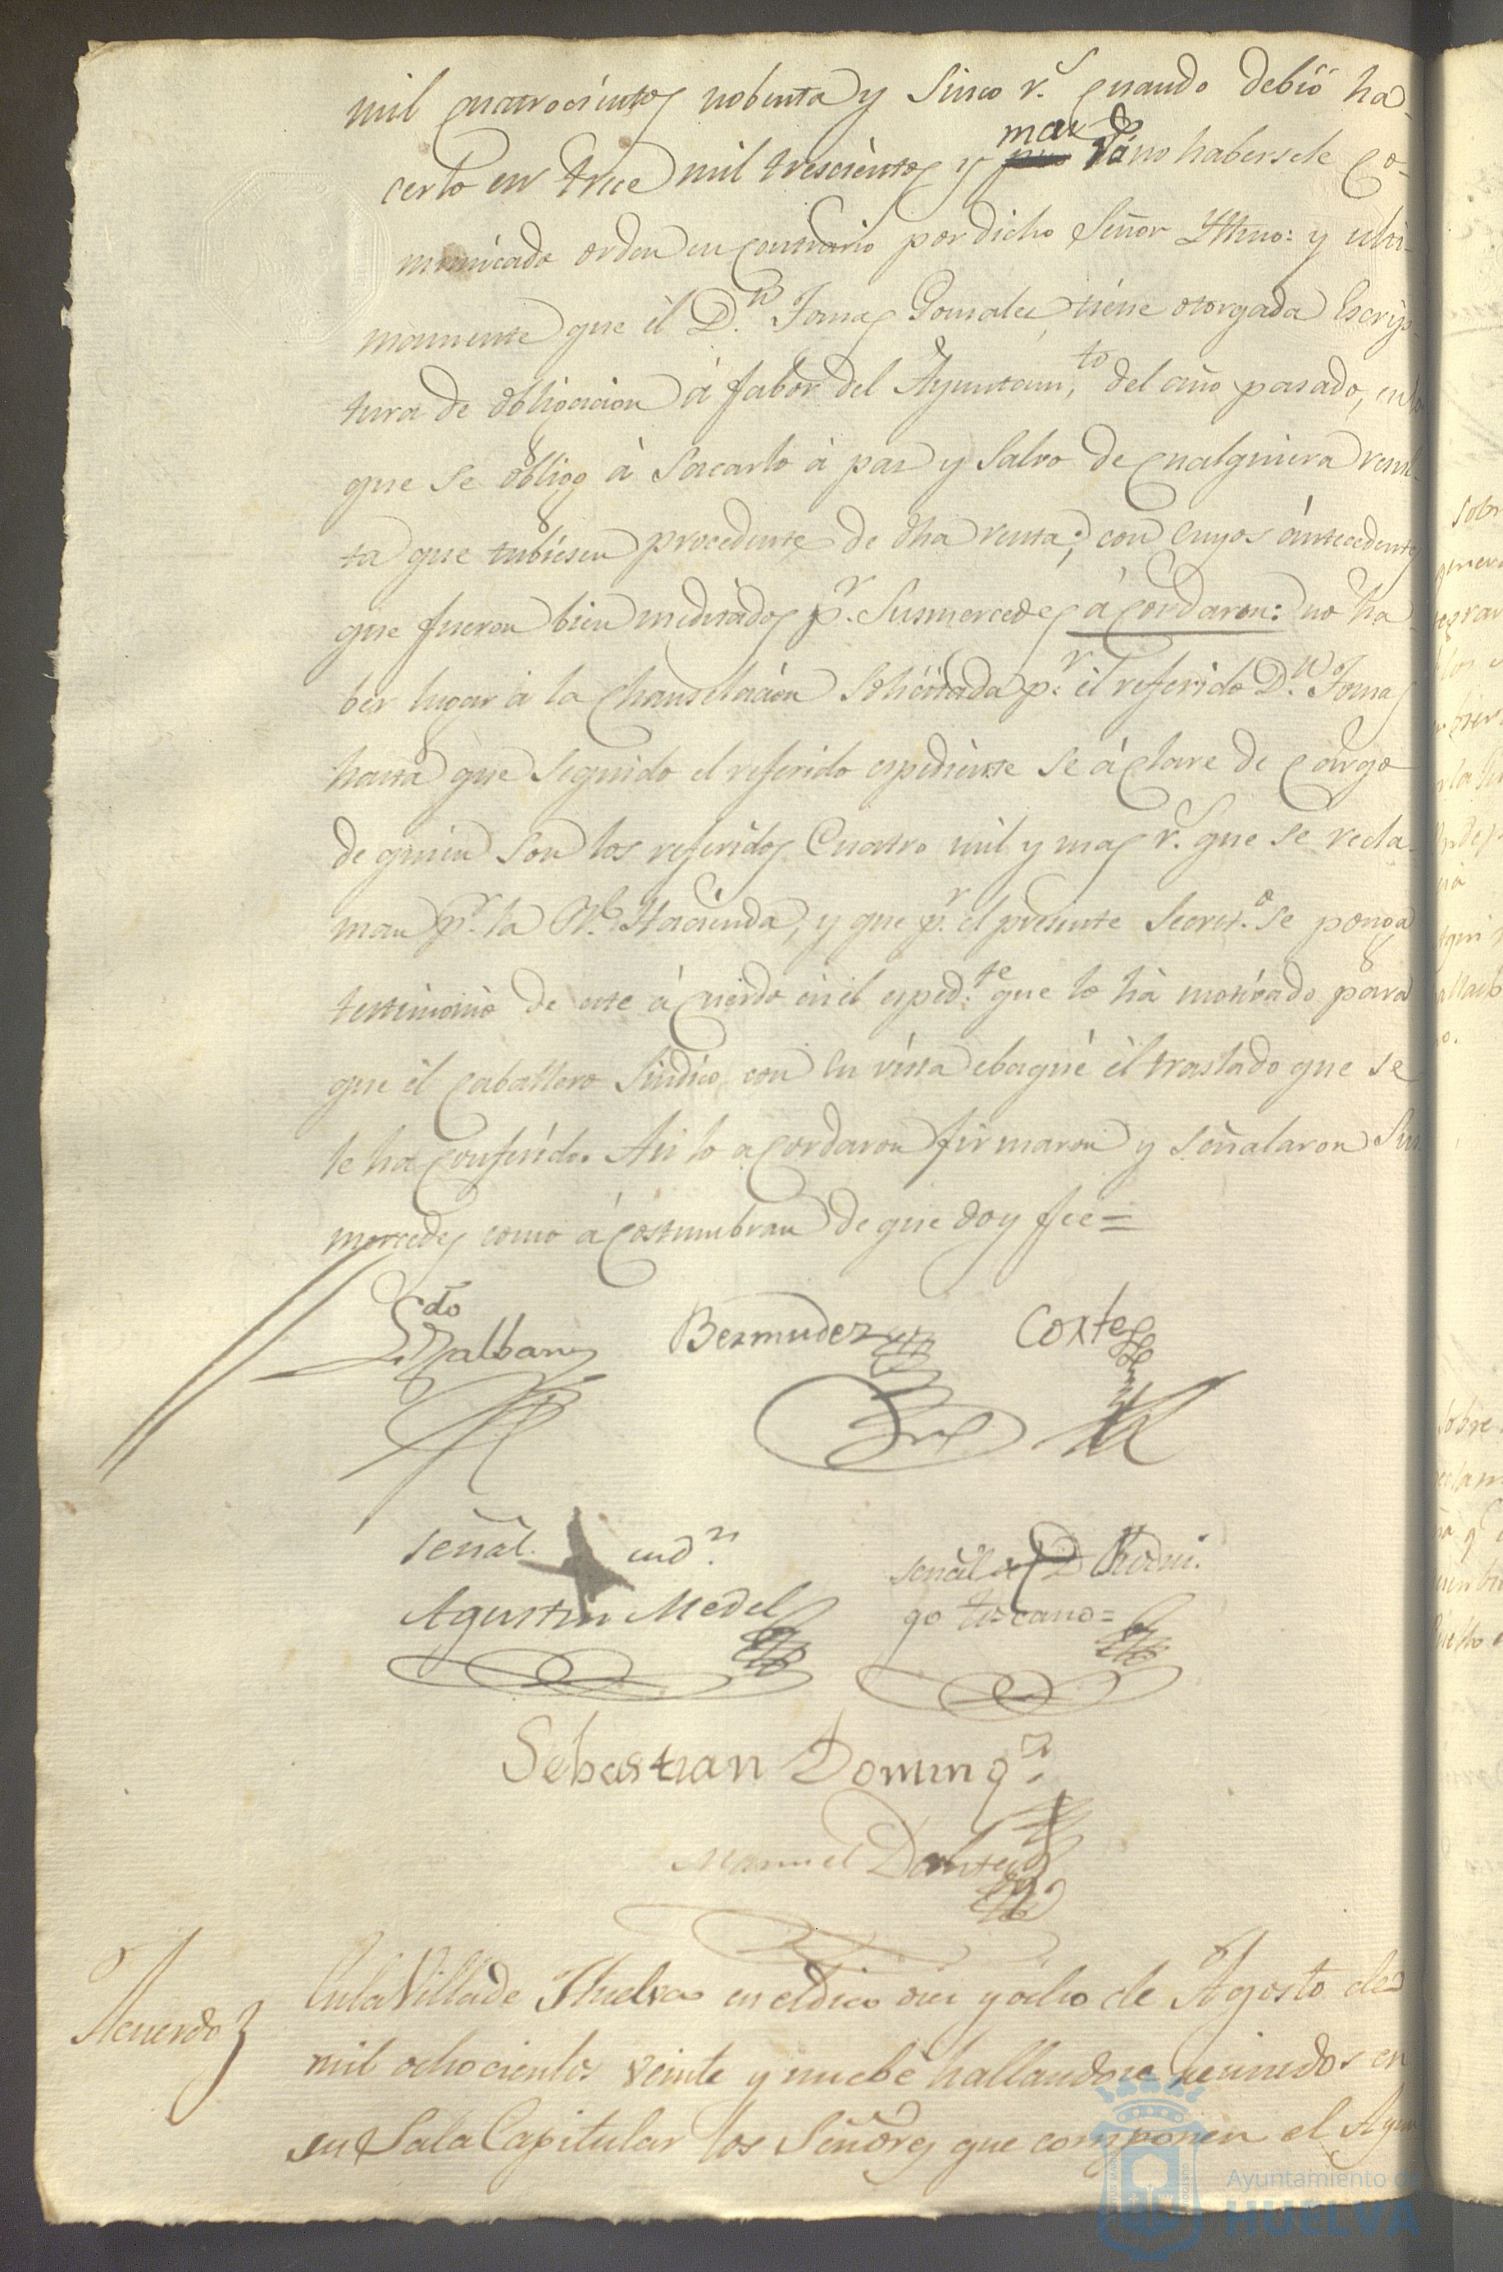 mil quatrocientos nobenta y sinco r.s quando debió ha-
cerlo en trece mil trescientos y mas r.s a no habersele co-
municado orden en contrario por dicho Señor Ythno: y ulti-
mamente que él D.n Tomas Gonzales, tiene otorgada Escrip-
tura de obligacion á fabor del Ayuntam,to del año pasado, en la
que se obligó á Sacarlo á paz y Salvo de qualquiera resul-
ta que tubiesen procedente de dha renta; con cuyos ántecedentes
que fueron bien meditados p.r Susmercedes ácordaron: no ha-
ber lugar á la Chanselacion Solicitada p.r él referido D.n Tomas
hasta que seguido el referido espediente se áclare de cargo
de quien son los referidos Cuatro mil y mas r.s que se recla-
man p.r la R.l Hacienda, y que p.r el presente Secret.o se ponga
testimonio de este ácuerdo én el esped.te que lo há motivado para
que él caballero Sindico con su vista ebaqué él traslado que se
le ha conferido. Asi lo acordaron firmaron y señalaron Sus
mercedes como ácostumbran de que doy fee=
Lcdo
Balbany Bermudez Cortes
señal. en d.n
Agustin Medel
señal de D Rodri.
go Toscano=
Sebastian Doming.z
Manuel Dantes
Acuerdo
En la Villa de Huelva en el dia dies y ocho de Agosto de
mil ochocientos veinte y nuebe hallandose reunidos en
su Sala Capitular los Señores que componen el Ayun
Ayuntamiento de
HUELVA